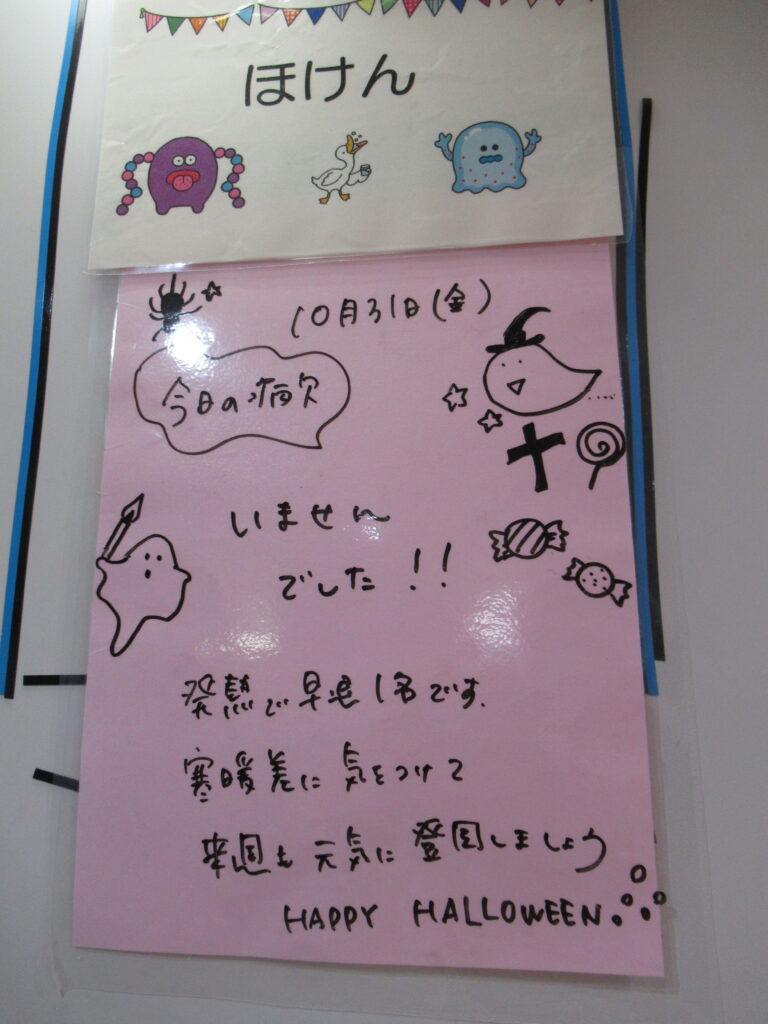 ほけん
10月31日(金)
今日の病欠
いません
でした!!
発熱で早退1名です.
寒暖差に気をつけて
来週も元気に登園しましょう
HAPPY HALLOWEEN